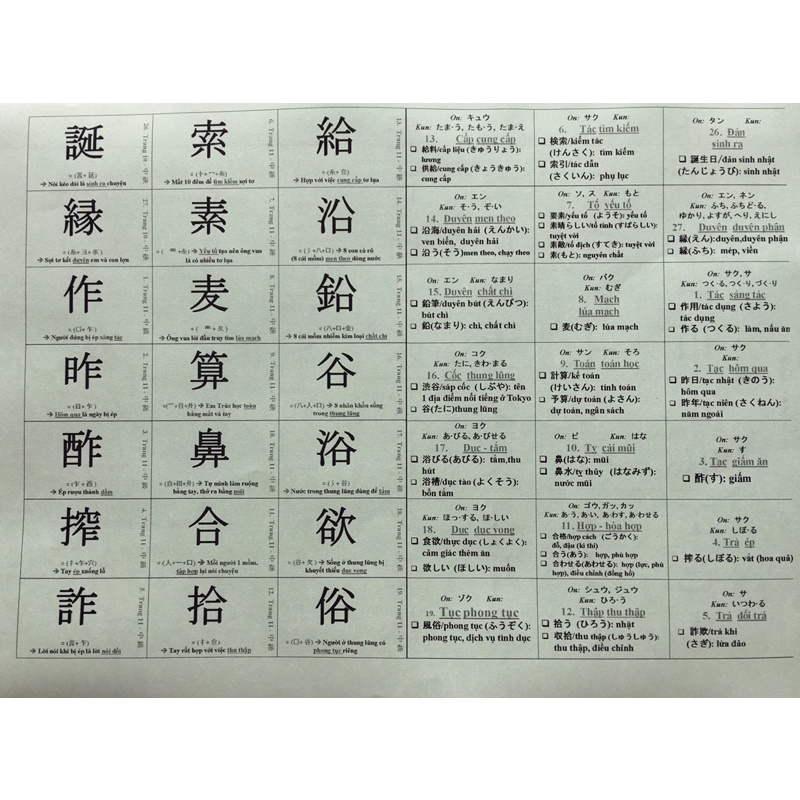 誕
= (言+延)
→ Nói kéo dài là sinh ra chuyện
26. Trang 10 - 中級
索
= (十+冖+糸)
→ Mất 10 đồng để tìm kiếm sợi tơ
6. Trang 11 - 中級
給
= (糸+合)
→ Hợp với việc cung cấp tơ lụa
13. Trang 11 - 中級
On: キュウ
Kun: たま·う, たも·う, たま·え
13. Cấp cung cấp
❑ 給料/cấp liệu (きゅうりょう): lương
❑ 供給/cung cấp (きょうきゅう): cung cấp
On: サク Kun:
6. Tác tìm kiếm
❑ 検索/kiểm tác (けんさく): tìm kiếm
❑ 索引/tác dẫn (さくいん): phụ lục
On: タン Kun:
26. Đản sinh ra
❑ 誕生日/đản sinh nhật (たんじょうび): sinh nhật
縁
→ Sợi tơ kết duyên em và con lợn
27. Trang 10 - 中級
素
→ Yếu tố tạo nên ông vua là có nhiều tơ lụa
7. Trang 11 - 中級
沿
= (氵+八+口)
→ 8 con cá rô (8 cái mồm) men theo dòng nước
14. Trang 11 - 中級
On: エン
Kun: そ·う, ぞ·い
14. Duyên men theo
❑ 沿海/duyên hải (えんかい): ven biển, duyên hải
❑ 沿う(そう) men theo, chạy theo
On: ソ, ス Kun: もと
7. Tố yếu tố
❑ 要素/yếu tố (ようそ): yếu tố
❑ 素晴らしい/tố tình (すばらしい): tuyệt vời
❑ 素敵/tố địch (すてき): tuyệt vời
❑ 素(もと): nguyên chất
On: エン, ネン
Kun: ふち, ふちど·る, ゆかり, よすが, へり, えにし
27. Duyên duyên phận
❑ 縁(えん):duyên,duyên phận
❑ 縁(ふち): mép, viền
作
= (亻+乍)
→ Người đứng bị ép sáng tác
1. Trang 11 - 中級
麦
→ Ông vua lôi đầu truy tìm lúa mạch
8. Trang 11 - 中級
鉛
= (八+口+金)
→ 8 cái mồm nhiễm kim loại chất chì
15. Trang 11 - 中級
On: エン Kun: なまり
15. Duyên chất chì
❑ 鉛筆/duyên bút (えんぴつ): bút chì
❑ 鉛(なまり): chì, chất chì
On: バク
Kun: むぎ
8. Mạch lúa mạch
❑ 麦(むぎ): lúa mạch
On: サク, サ
Kun: つく·る, つく·り, づく·り
1. Tác sáng tác
❑ 作用/tác dụng (さよう): tác dụng
❑ 作る (つくる): làm, nấu ăn
昨
= (日+乍)
→ Hôm qua là ngày bị ép
2. Trang 11 - 中級
算
→ Em Trúc học toán bằng mắt và tay
9. Trang 11 - 中級
谷
= (八+人+口)
→ 8 nhân khẩu sống trong thung lũng
16. Trang 11 - 中級
On: コク
Kun: たに, きわ·まる
16. Cốc thung lũng
❑ 渋谷/sáp cốc (しぶや): tên 1 địa điểm nổi tiếng ở Tokyo
❑ 谷(たに)thung lũng
On: サン Kun: そろ
9. Toán toán học
❑ 計算/kế toán (けいさん): tính toán
❑ 予算/dự toán (よさん): dự toán, ngân sách
On: サク
Kun:
2. Tạc hôm qua
❑ 昨日/tạc nhật (きのう): hôm qua
❑ 昨年/tạc niên (さくねん): năm ngoái
酢
= (乍+酉)
→ Ép rượu thành dấm
3. Trang 11 - 中級
鼻
→ Tự mình làm ruộng bằng tay, thở ra bằng mũi
10. Trang 11 - 中級
浴
= (氵+谷)
→ Nước trong thung lũng dùng để tắm
17. Trang 11 - 中級
On: ヨク
Kun: あ·びる, あ·びせる
17. Dục - tắm
❑ 浴びる(あびる): tắm,thu hút
❑ 浴槽/dục tào (よくそう): bồn tắm
On: ビ Kun: はな
10. Tỵ cái mũi
❑ 鼻(はな): mũi
❑ 鼻水/tỵ thủy (はなみず): nước mũi
On: サク
Kun: す
3. Tạc giấm ăn
❑ 酢(す): giấm
搾
= (扌+乍+穴)
→ Tay ép xuống lỗ
4. Trang 11 - 中級
合
= (人+一+口)
→ Mỗi người 1 mồm, tập hợp lại nói chuyện
11. Trang 11 - 中級
欲
= (谷+欠)
→ Sống ở thung lũng bị khuyết thiếu dục vọng
18. Trang 11 - 中級
On: ヨク
Kun: ほっ·する, ほ·しい
18. Dục dục vọng
❑ 食欲/thực dục (しょくよく): cảm giác thèm ăn
❑ 欲しい (ほしい): muốn
On: ゴウ, ガッ, カッ
Kun: あ·う, あ·い, あ·わす, あ·わせる
11. Hợp - hòa hợp
❑ 合格/hợp cách (ごうかく): đỗ, đậu (kì thi)
❑ 合う(あう): hợp, phù hợp
❑ 合わせる(あわせる): hợp (lực, phù hợp), điều chỉnh (đồng hồ)
On: サク
Kun: しぼ·る
4. Trá ép
❑ 搾る(しぼる): vắt (hoa quả)
詐
= (言+乍)
→ Lời nói khi bị ép là lời nói dối
5. Trang 11 - 中級
拾
= (扌+合)
→ Tay rất hợp với việc thu thập
12. Trang 11 - 中級
俗
= (亻+谷)
→ Người ở thung lũng có phong tục riêng
19. Trang 11 - 中級
On: ゾク Kun:
19. Tục phong tục
❑ 風俗/phong tục (ふうぞく): phong tục, dịch vụ tình dục
On: シュウ, ジュウ
Kun: ひろ·う
12. Thập thu thập
❑ 拾う (ひろう): nhặt
❑ 収拾/thu thập (しゅうしゅう): thu thập, điều chỉnh
On: サ
Kun: いつわ·る
5. Trá dối trá
❑ 詐欺/trá khi (さぎ): lừa đảo